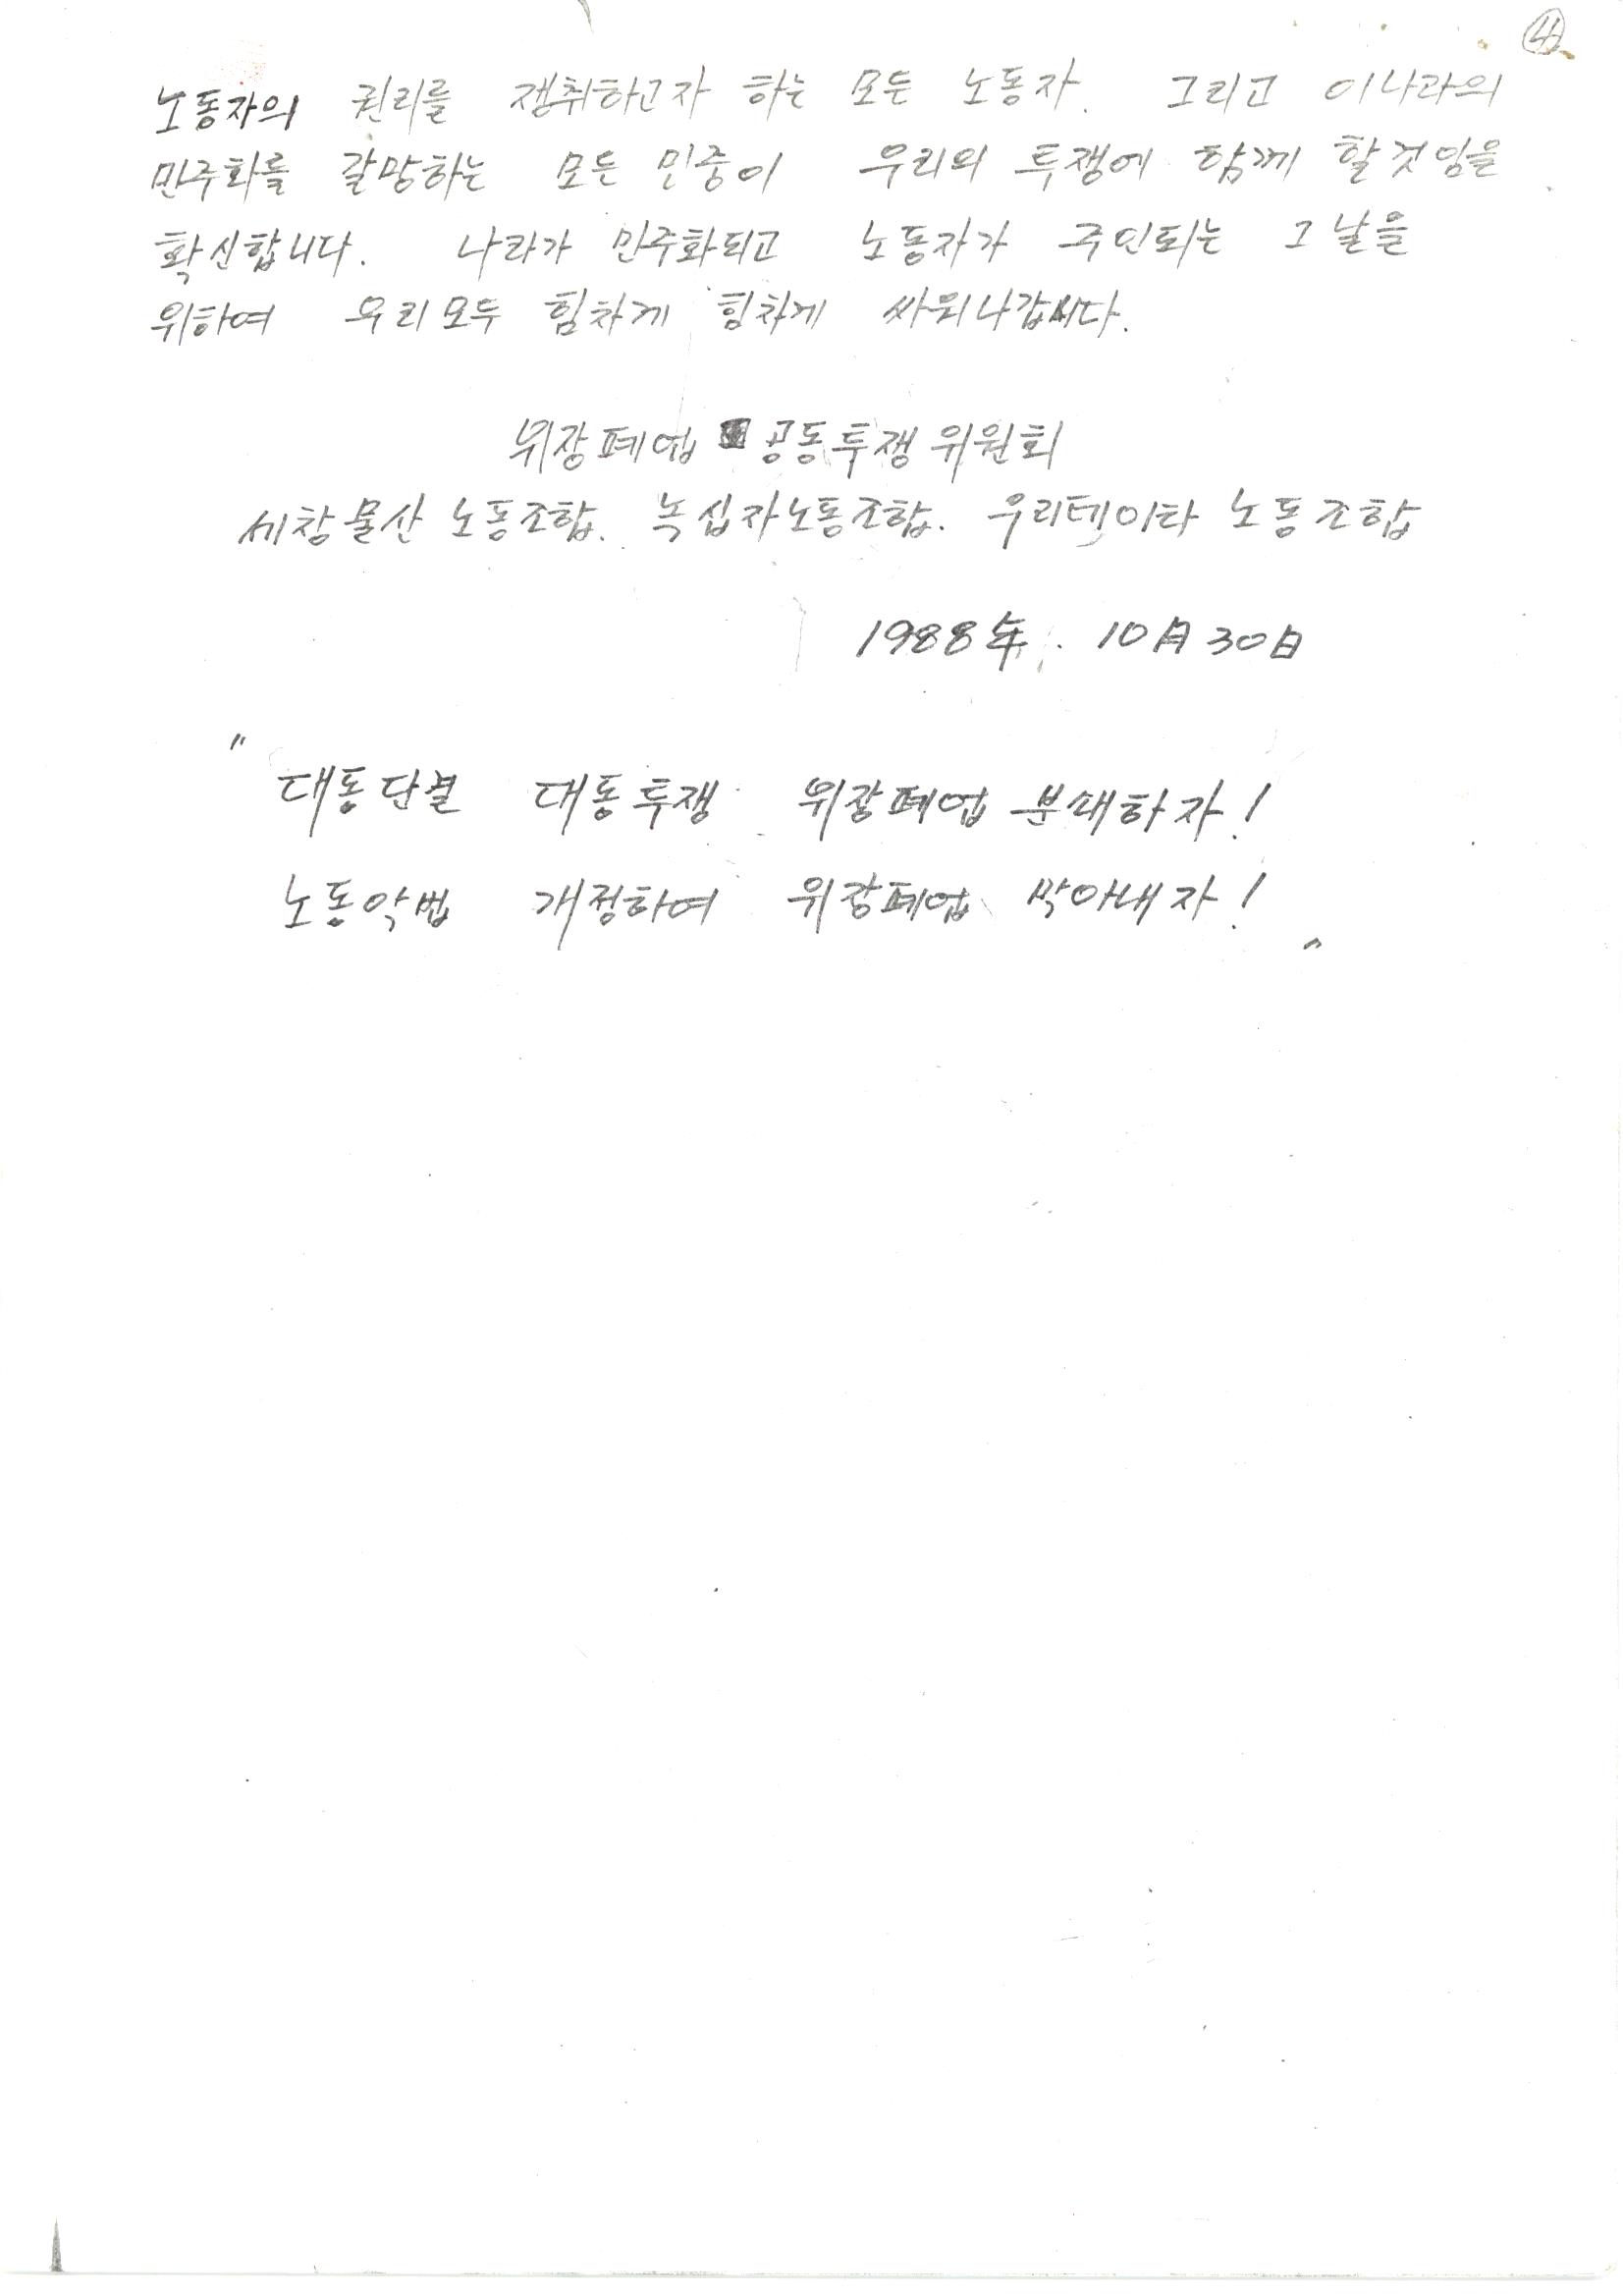 ④
노동자의 권리를 쟁취하고자 하는 모든 노동자. 그리고 이나라의
민주화를 갈망하는 모든 민중이 우리의 투쟁에 함께 할것임을
확신합니다. 나라가 민주화되고 노동자가 주인되는 그날을
위하여 우리모두 힘차게 힘차게 싸워나갑시다.
위장폐업 공동투쟁위원회
세창물산 노동조합. 녹십자노동조합. 우리데이타 노동조합
1988年. 10月 30日
"
대동단결 대동투쟁 위장폐업 분쇄하자!
노동악법 개정하여 위장폐업 막아내자!
"